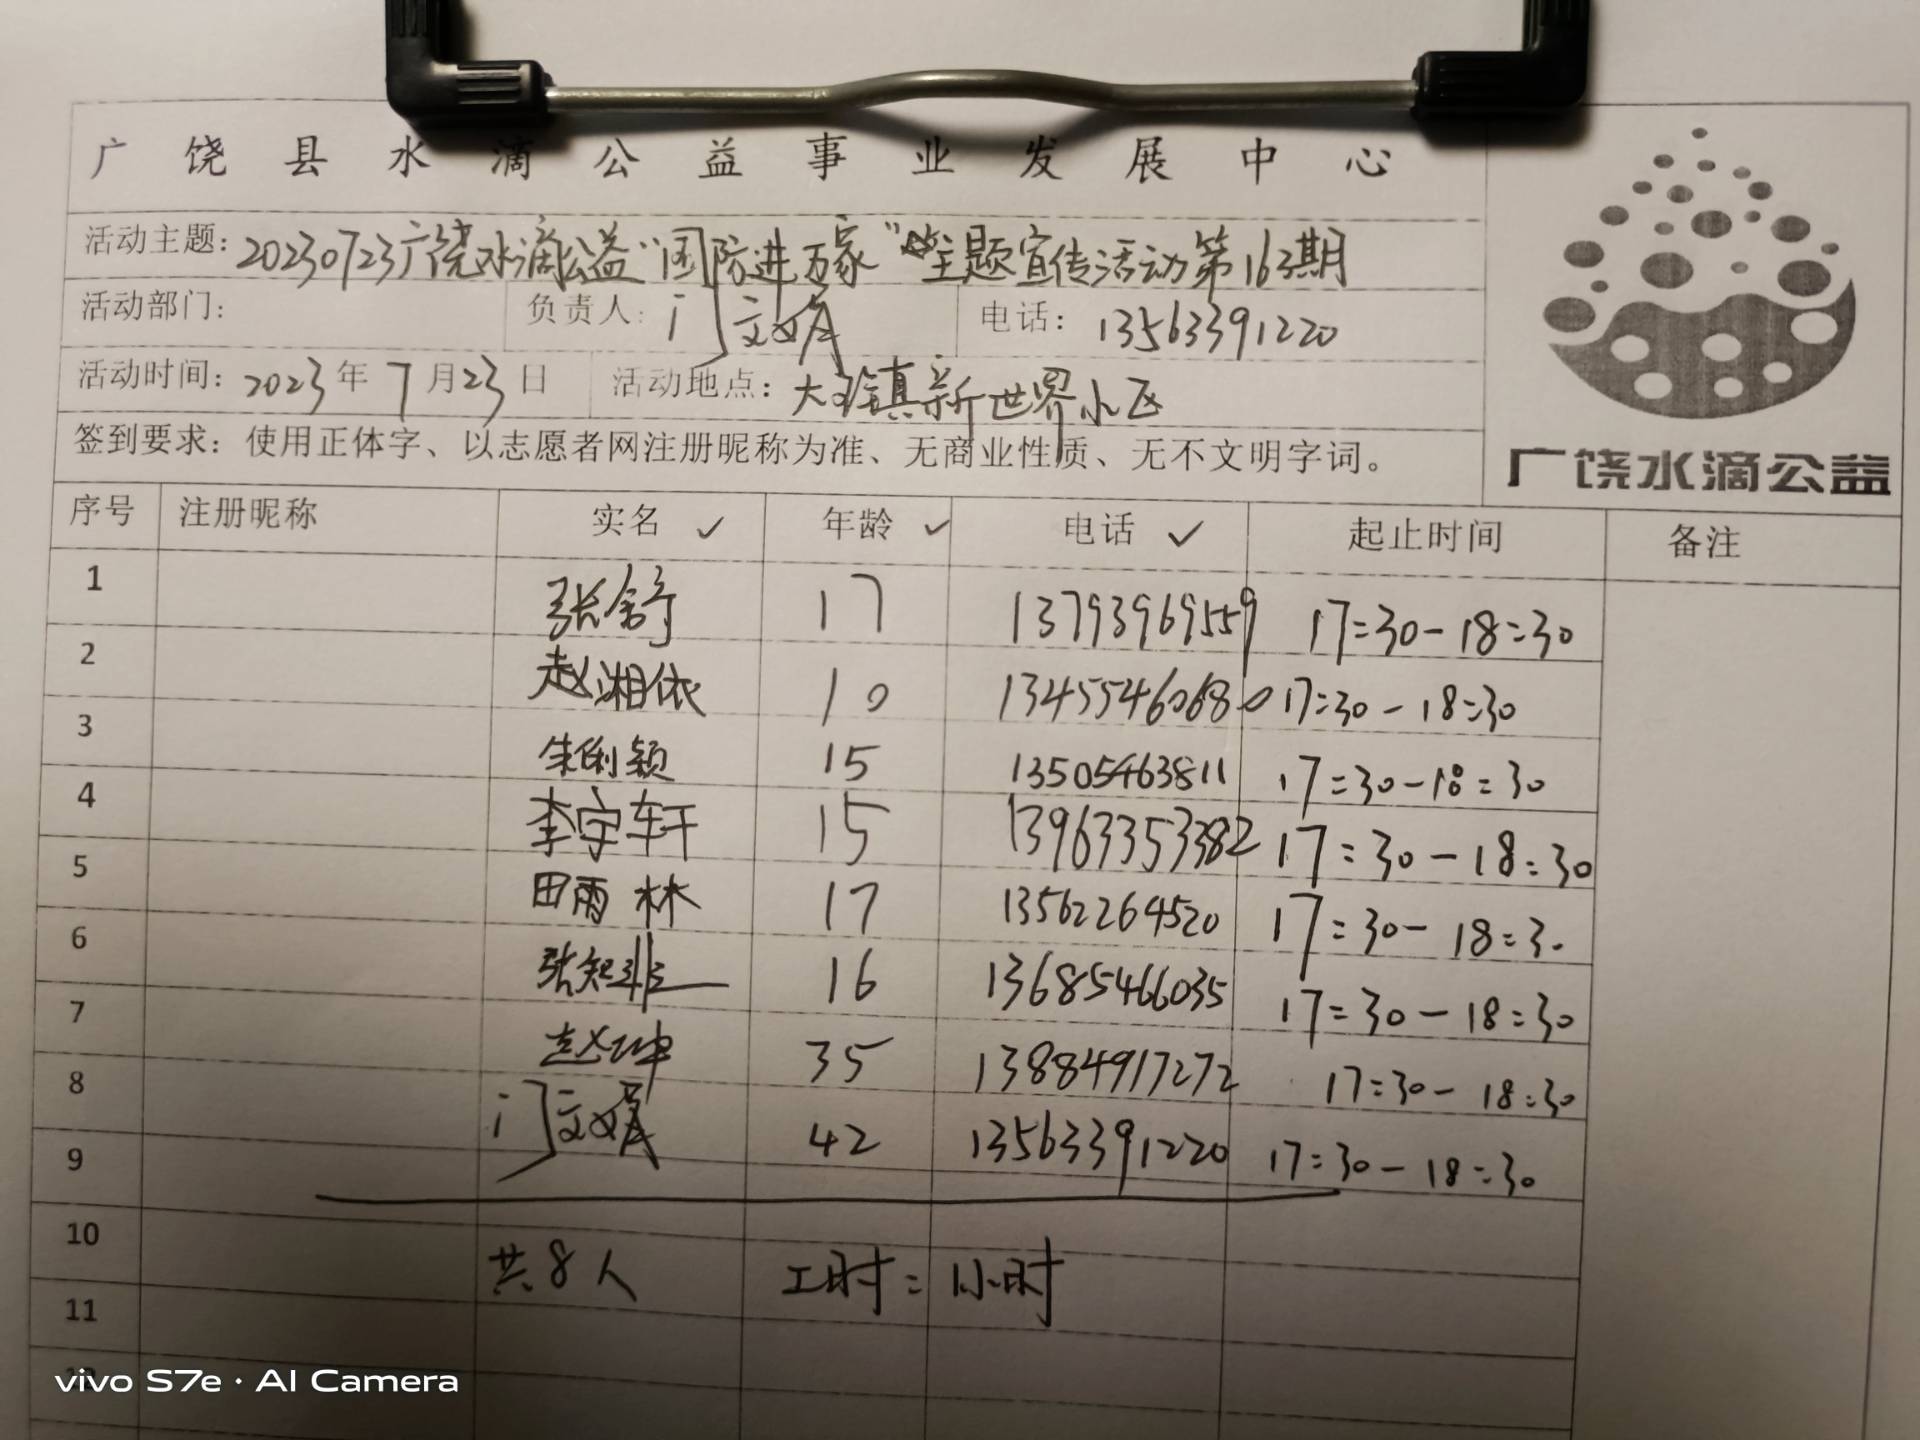 广饶县水滴公益事业发展中心
活动主题：20230723广饶水滴公益“国防进万家”主题宣传活动第163期
活动部门： 负责人：门文娟 电话：13563391220
活动时间：2023年7月23日 活动地点：大王镇新世界小区
签到要求：使用正体字、以志愿者网注册昵称为准、无商业性质、无不文明字词。
广饶水滴公益
序号 注册昵称 实名 ✓ 年龄 ✓ 电话 ✓ 起止时间 备注
1 张舒 17 13793969559 17:30-18:30
2 赵湘依 10 13455460680 17:30-18:30
3 朱俐颖 15 13505463811 17:30-18:30
4 李宇轩 15 13963353382 17:30-18:30
5 田雨林 17 13562264520 17:30-18:30
6 张知非 16 13685466035 17:30-18:30
7 赵坤 35 13884917272 17:30-18:30
8 门文娟 42 13563391220 17:30-18:30
9
10 共8人 工时：1小时
11
12
vivo S7e · AI Camera